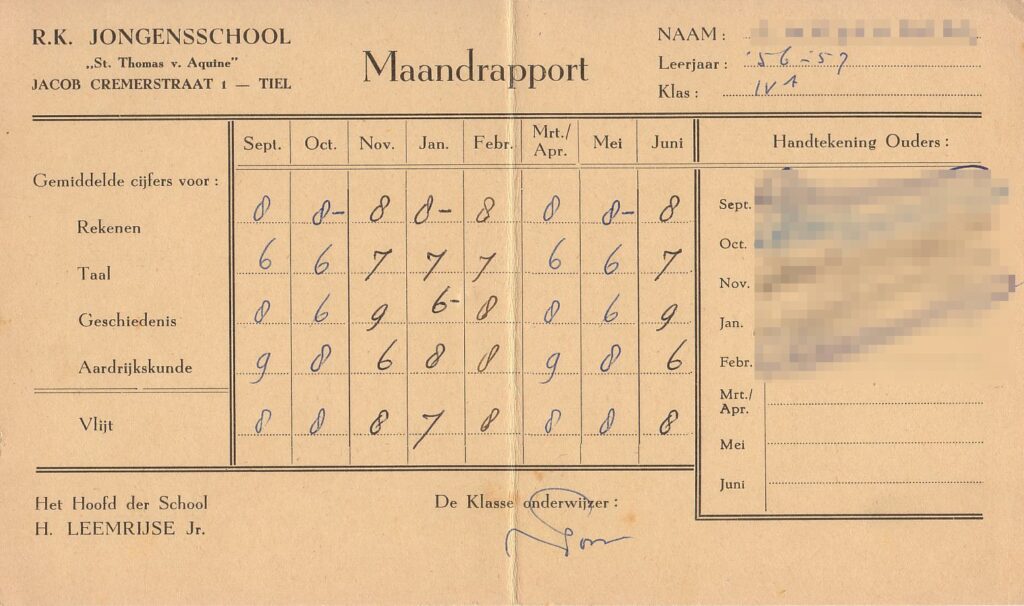 R.K. JONGENSSCHOOL
„St. Thomas v. Aquine"
JACOB CREMERSTRAAT 1 — TIEL
Maandrapport
NAAM :
Leerjaar : '56-57
Klas : IV A
Sept. Oct. Nov. Jan. Febr. Mrt./Apr. Mei Juni Handtekening Ouders :
Gemiddelde cijfers voor :
Rekenen 8 8- 8 8- 8 8 8- 8
Taal 6 6 7 7 7 6 6 7
Geschiedenis 8 6 9 6- 8 8 6 9
Aardrijkskunde 9 8 6 8 8 9 8 6
Vlijt 8 8 8 7 8 8 8 8
Sept.
Oct.
Nov.
Jan.
Febr.
Mrt./
Apr.
Mei
Juni
Het Hoofd der School
H. LEEMRIJSE Jr.
De Klasse onderwijzer :